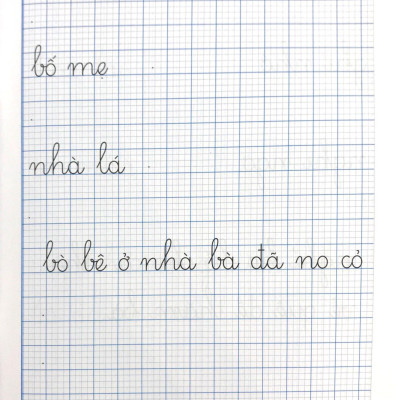 bố mẹ
nhà lá
bò bê ở nhà bà đã no cỏ